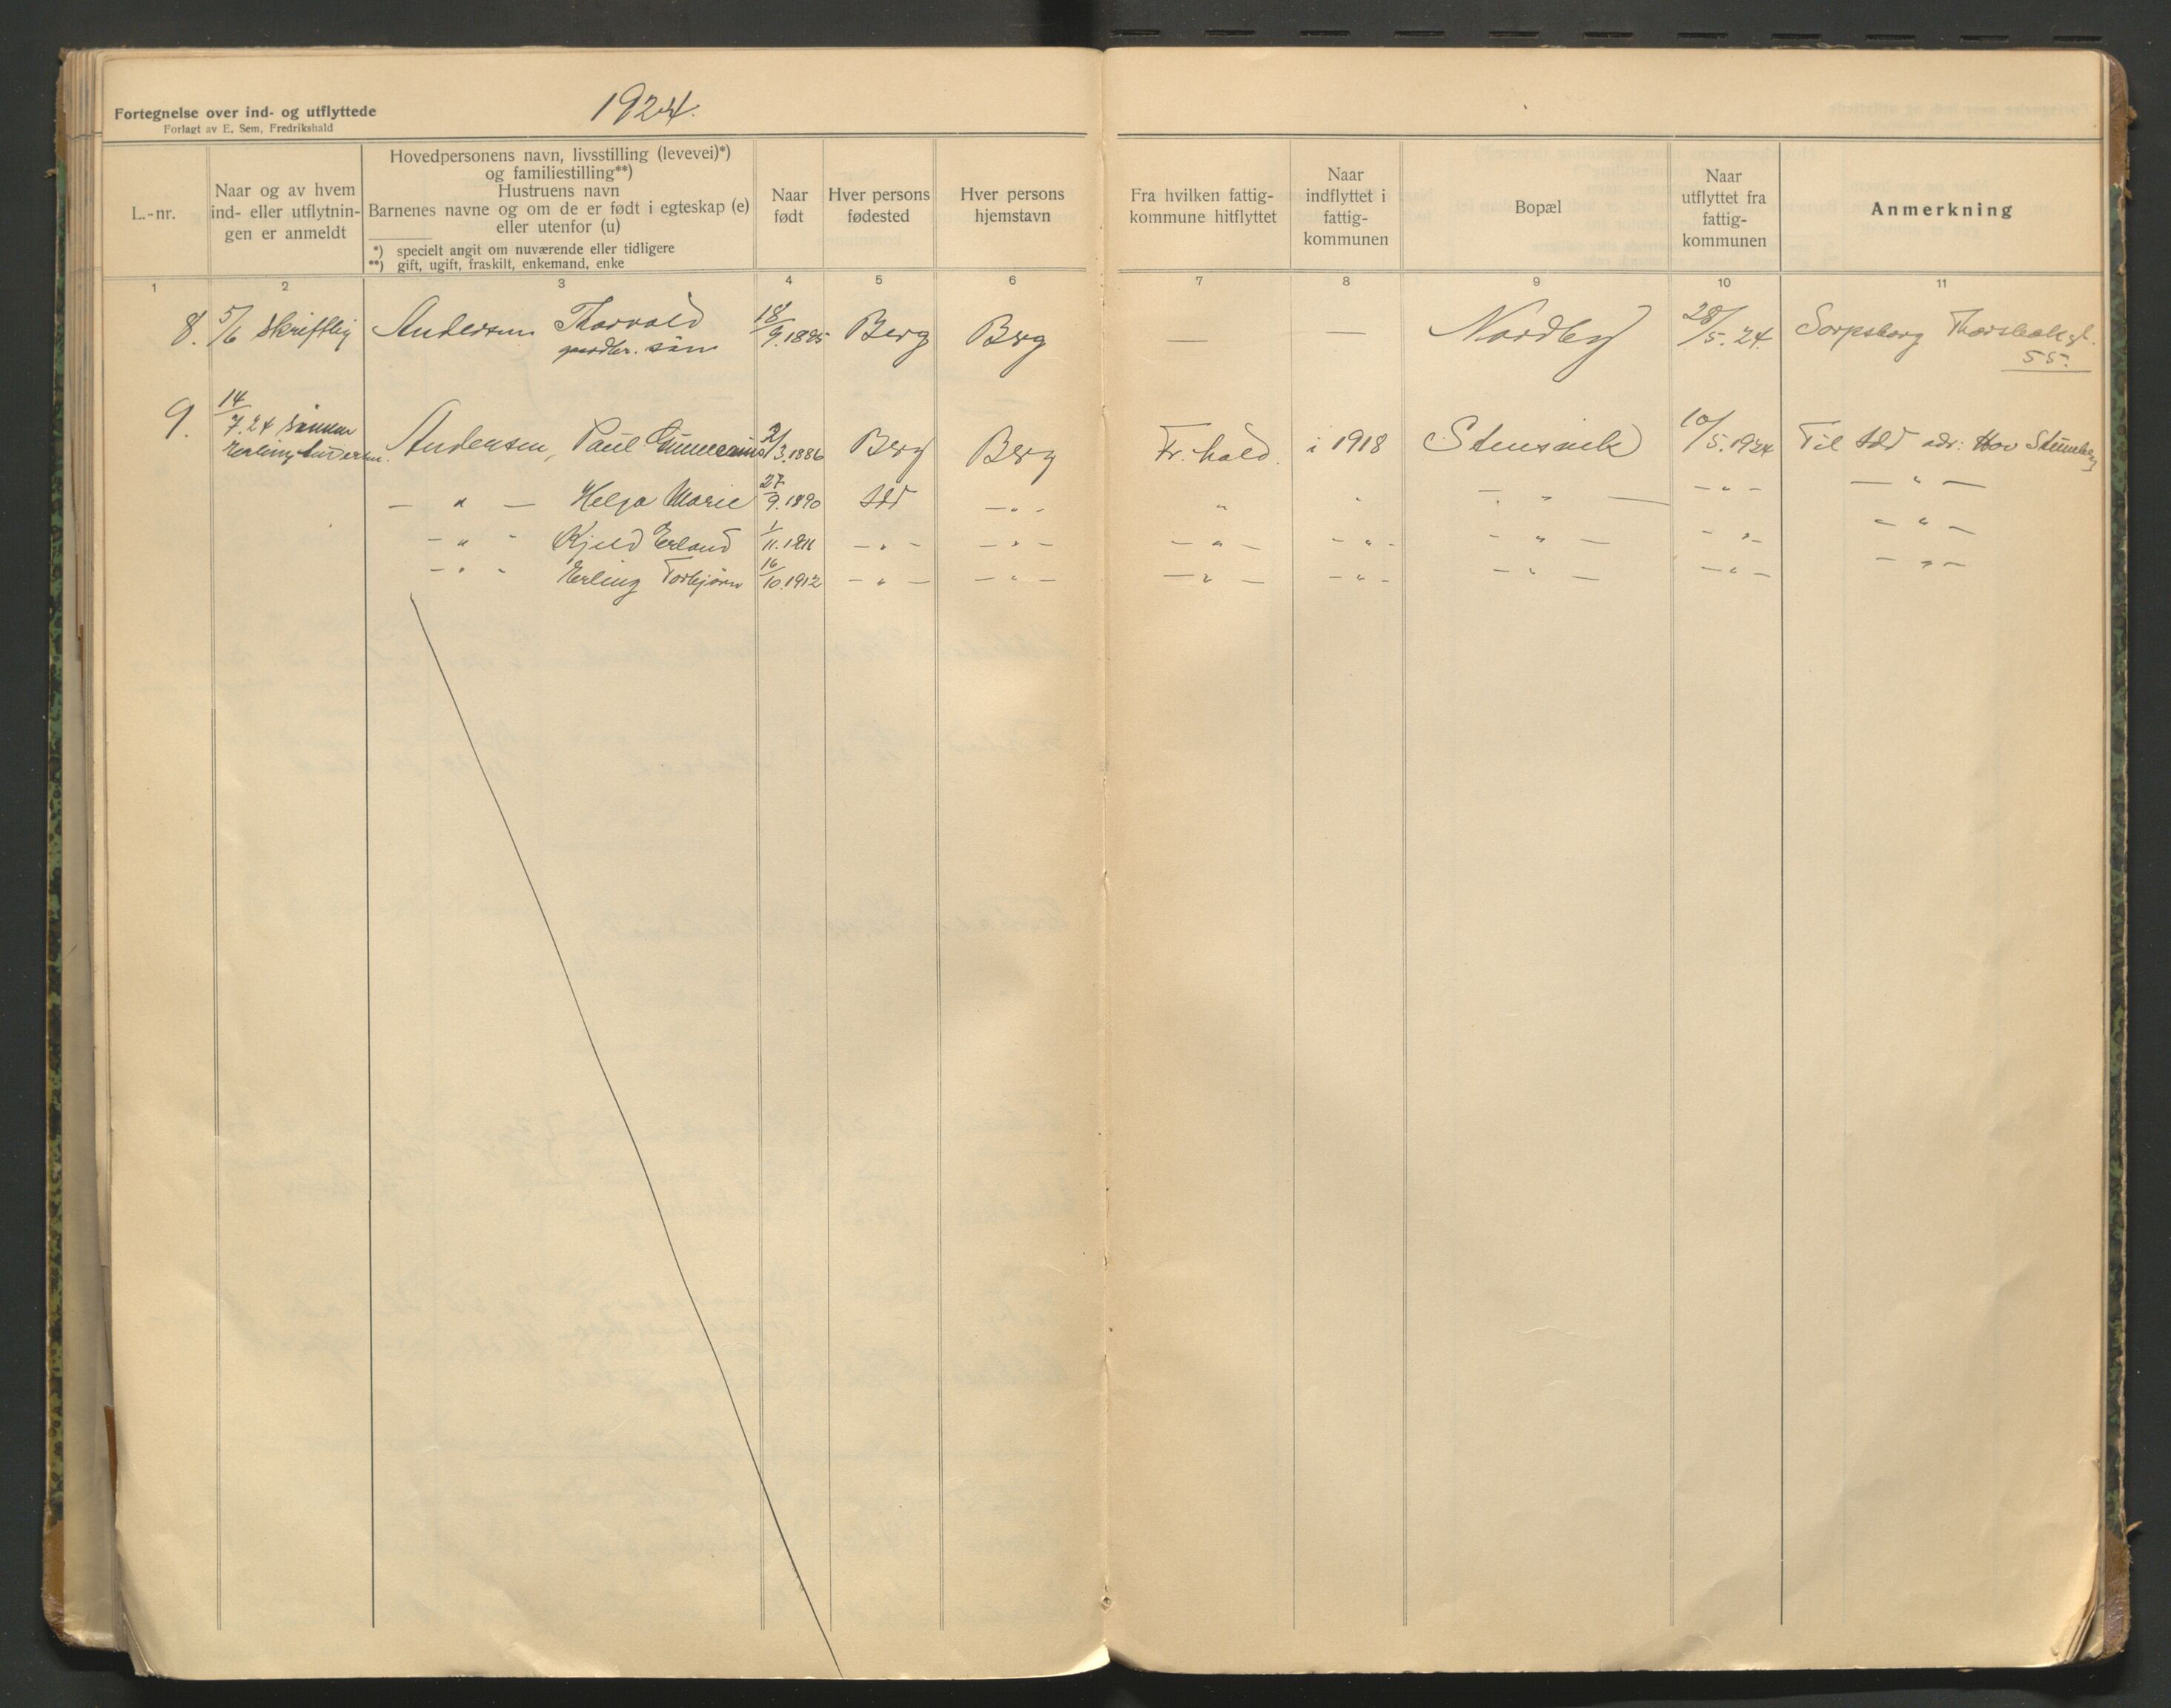 Fortegnelse over ind- og utflyttede
Forlagt av E. Sem, Fredrikshald
1924.
L.-nr.
Naar og av hvem
ind- eller utflytnin-
gen er anmeldt
Hovedpersonens navn, livsstilling (levevei)*)
og familiestilling**)
Hustruens navn
Barnenes navne og om de er født i egteskap (e)
eller utenfor (u)
*) specielt angit om nuværende eller tidligere
**) gift, ugift, fraskilt, enkemand, enke
Naar
født
Hver persons
fødested
Hver persons
hjemstavn
Fra hvilken fattig-
kommune hitflyttet
Naar
indflyttet i
fattig-
kommunen
Bopæl
Naar
utflyttet fra
fattig-
kommunen
Anmerkning
1 2 3 4 5 6 7 8 9 10 11
8. 5/6 skriftlig Andersen Thorvald 18/9.1895 Berg Berg — — Nordby 28/5.24. Sarpsborg
gaardbr. søn
55.
9. 14/7.24 sønnen
Erling Andersen. Andersen, Paul Gunerius 2/3.1886 Berg Berg Fr.hald. i 1918 Stensvik 10/5.1924 Til Idd adr: Hov
— " — Helga Marie 27/9.1890 Idd — " — " " — " — — " — — " —
— " — Kjeld Erland 1/11.1911 — " — — " — — " — — " — — " — — " — — " —
— " — Erling Torbjørn 16/10.1912 — " — — " — — " — — " — — " — — " — — " —